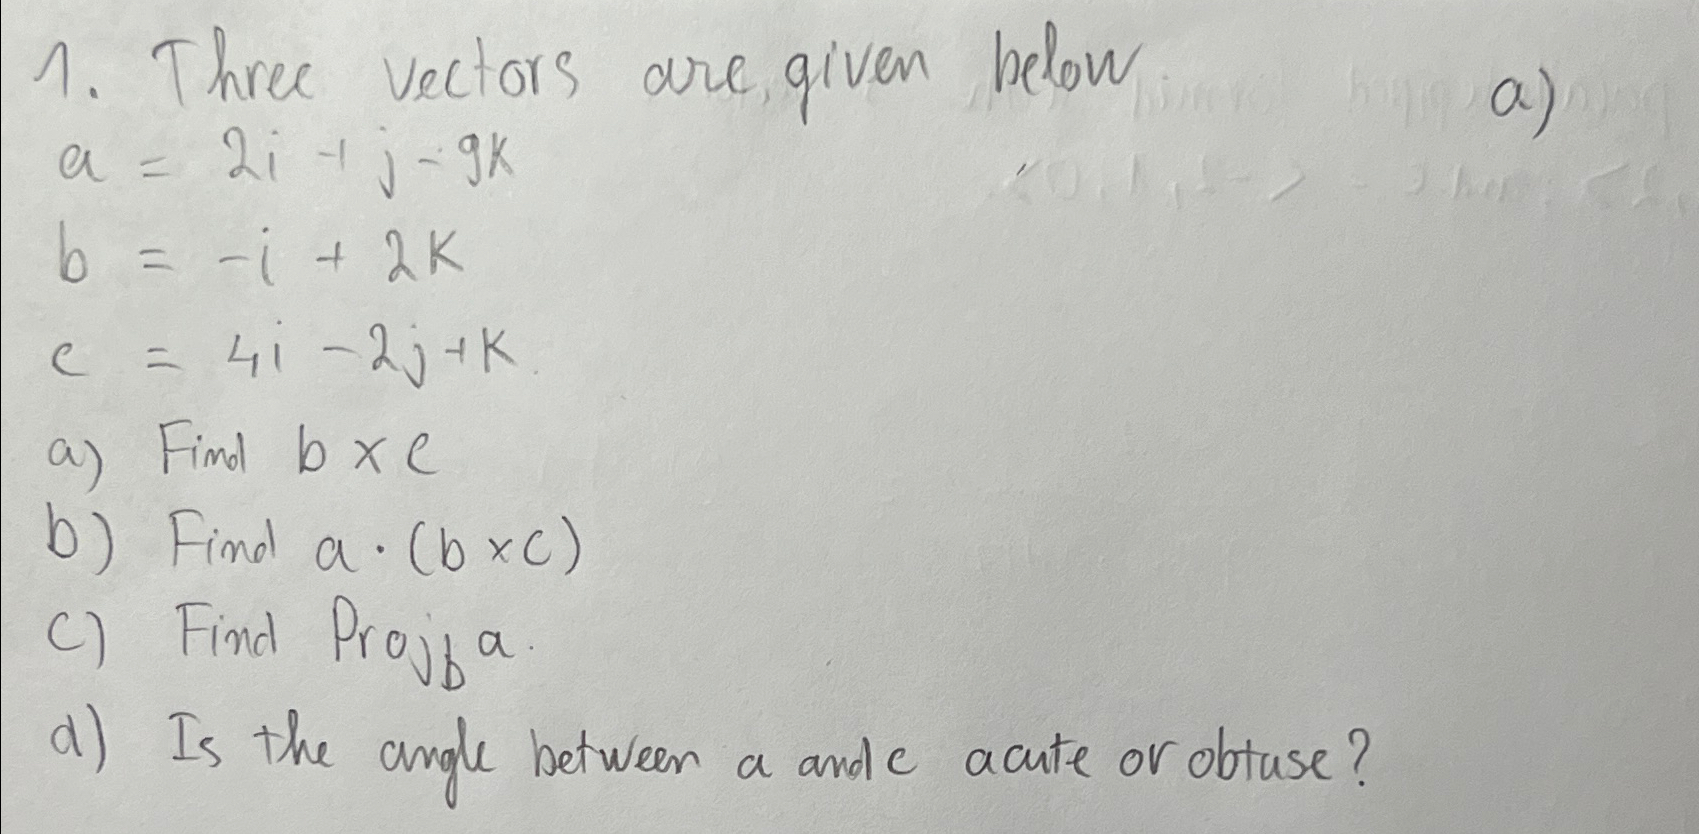 1. Three vectors are given below
a)
a = 2i + j - 9k
b = -i + 2k
c = 4i - 2j + k.
a) Find b x c
b) Find a · (b x c)
c) Find Projb a.
d) Is the angle between a and c acute or obtuse?